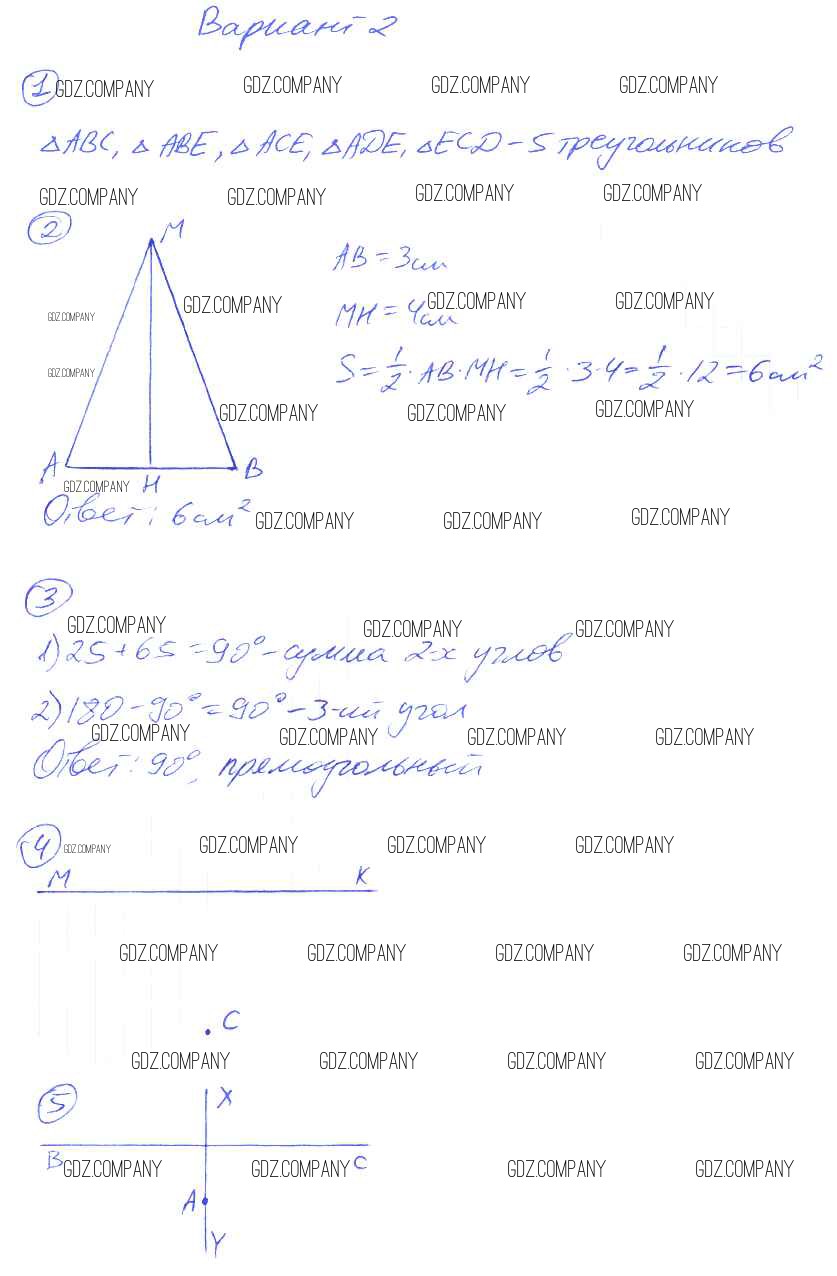 Вариант 2
1 GDZ.COMPANY GDZ.COMPANY GDZ.COMPANY GDZ.COMPANY
△ABC, △ABE, △ACE, △ADE, △ECD - 5 треугольников
GDZ.COMPANY GDZ.COMPANY GDZ.COMPANY GDZ.COMPANY
2
M
AB = 3см
GDZ.COMPANY GDZ.COMPANY GDZ.COMPANY GDZ.COMPANY
MH = 4см
GDZ.COMPANY
S = 1/2 · AB · MH = 1/2 · 3 · 4 = 1/2 · 12 = 6см²
GDZ.COMPANY GDZ.COMPANY GDZ.COMPANY
A H B
GDZ.COMPANY
Ответ: 6см²
GDZ.COMPANY GDZ.COMPANY GDZ.COMPANY
3
GDZ.COMPANY GDZ.COMPANY GDZ.COMPANY
1) 25 + 65 = 90° - сумма 2-х углов
2) 180 - 90° = 90° - 3-ий угол
GDZ.COMPANY GDZ.COMPANY GDZ.COMPANY GDZ.COMPANY
Ответ: 90°, прямоугольный
4 GDZ.COMPANY GDZ.COMPANY GDZ.COMPANY GDZ.COMPANY
M K
GDZ.COMPANY GDZ.COMPANY GDZ.COMPANY GDZ.COMPANY
C
GDZ.COMPANY GDZ.COMPANY GDZ.COMPANY GDZ.COMPANY
5
X
B C
GDZ.COMPANY GDZ.COMPANY GDZ.COMPANY GDZ.COMPANY
A
Y